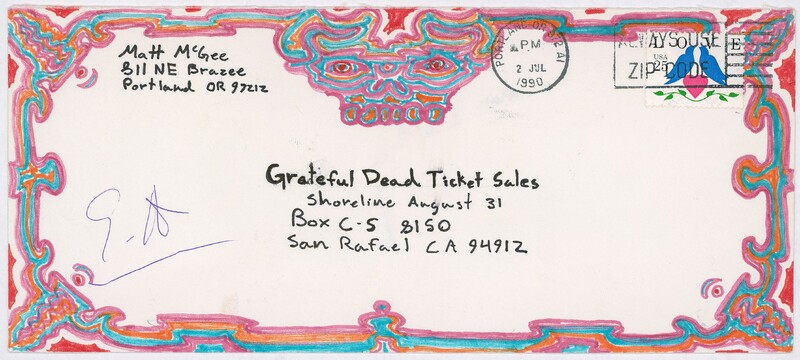 Matt McGee
811 NE Brazee
Portland OR 97212
PORTLAND OR
PM
2 JUL
1990
ALWAYS USE
ZIP CODE
LOVE
USA
25
Grateful Dead Ticket Sales
Shoreline August 31
Box C-S 8150
San Rafael CA 94912